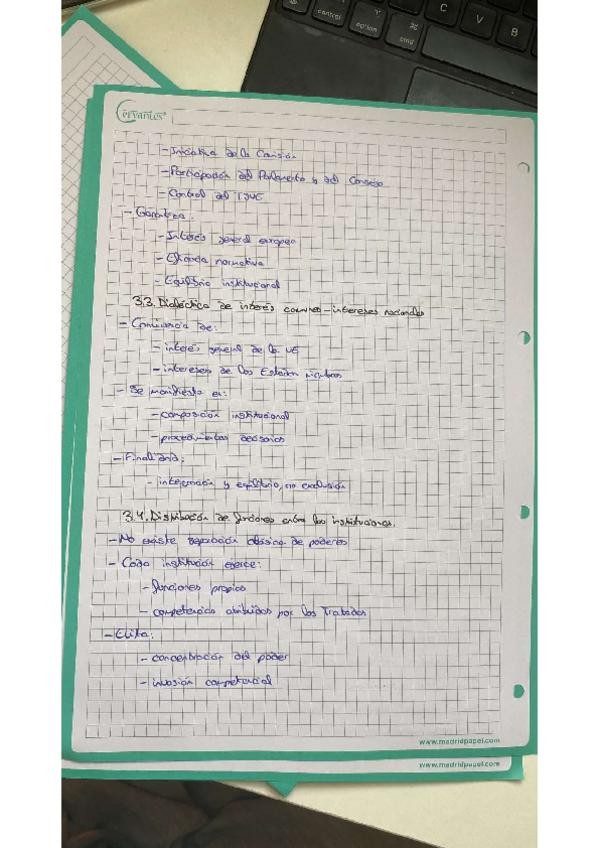 control
option
⌘
cmd
C
V
B
Cervantes
- Iniciativa de la Comisión
- Participación del Parlamento y del Consejo
- Control del TJUE
- Garantiza:
- Interés general europeo
- Eficacia normativa
- Equilibrio institucional
3.3. Dialéctica de interés común - intereses nacionales
- Convivencia de:
- interés general de la UE
- intereses de los Estados miembros
- Se manifiesta en:
- composición institucional
- procedimientos decisorios
- Finalidad:
- integración y equilibrio, no exclusión
3.4. Distribución de funciones entre las instituciones.
- No existe separación clásica de poderes
- Cada institución ejerce:
- funciones propias
- competencias atribuidas por los Tratados
- Evita:
- concentración del poder
- invasión competencial
www.madridpapel.com
www.madridpapel.com